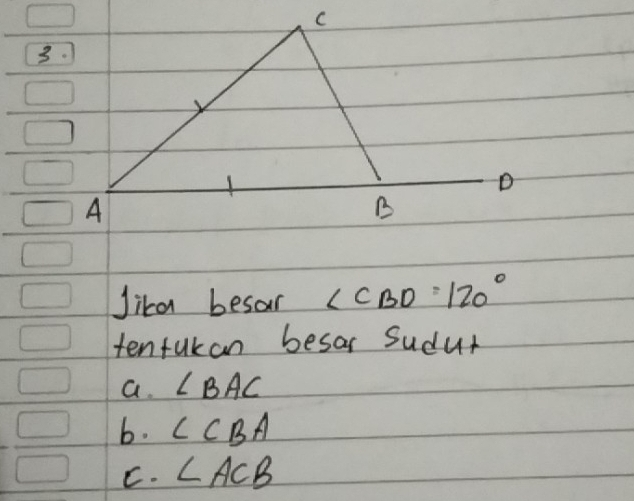 C
3.
A
B
D
Jika besar ∠CBD = 120°
tentukan besar Sudut
a. ∠BAC
b. ∠CBA
c. ∠ACB